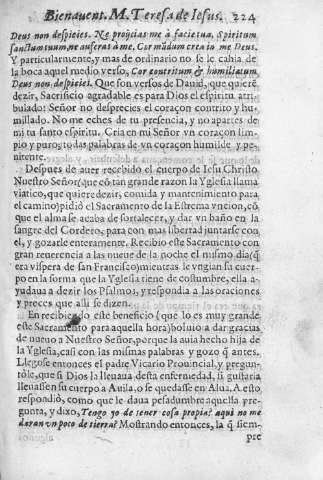 Bienauent. M. Teresa de Iesus. 224
Deus non despicies. Ne proijcias me à facie tua, Spiritum
sanctum tuum, ne auferas à me. Cor mũdum crea in me Deus.
Y particularmente, y mas de ordinario no se le cahia de
la boca aquel medio verso, Cor contritum & humiliatum
Deus non despicies. Que son versos de Dauid, que quierẽ
dezir, Sacrificio agradable es para Dios el espiritu atri-
bulado: Señor no desprecies el coraçon contrito y hu-
millado. No me eches de tu presencia, y no apartes de
mi tu santo espiritu. Cria en mi Señor vn coraçon lim-
pio y puro: todas palabras de vn coraçon humilde y pe-
nitente.
Despues de auer recebido el cuerpo de Iesu Christo
Nuestro Señor (que cõ tan grande razon la Yglesia llama
viatico, que quiere dezir, comida y mantenimiento para
el camino) pidio el Sacramento de la Estrema vncion, cõ
que el alma se acaba de fortalecer, y dar vn baño en la
sangre del Cordero, para con mas libertad juntarse con
el, y gozarle enteramente. Recibio este Sacramento con
gran reuerencia a las nueue de la noche el mismo dia (q̃
era vispera de san Francisco) mientras le vngian su cuer-
po en la forma que la Yglesia tiene de costumbre, ella a-
yudaua a dezir los Psalmos, y respondia a las oraciones
y preces que alli se dizen.
En recibiendo este beneficio (que lo es muy grande
este Sacramento para aquella hora) boluio a dar gracias
de nueuo a Nuestro Señor, porque la auia hecho hija de
la Yglesia, casi con las mismas palabras y gozo q̃ antes.
Llegose entonces el padre Vicario Prouincial, y pregun-
tóle, que si Dios la lleuaua desta enfermedad, si gustaria
lleuassen su cuerpo a Auila, o se quedasse en Alua. A esto
respondió, como que le daua pesadumbre aquella pre-
gunta, y dixo, Tengo yo de tener cosa propia? aqui no me
daran vn poco de tierra? Mostrando entonces, la q̃ siem-
pre